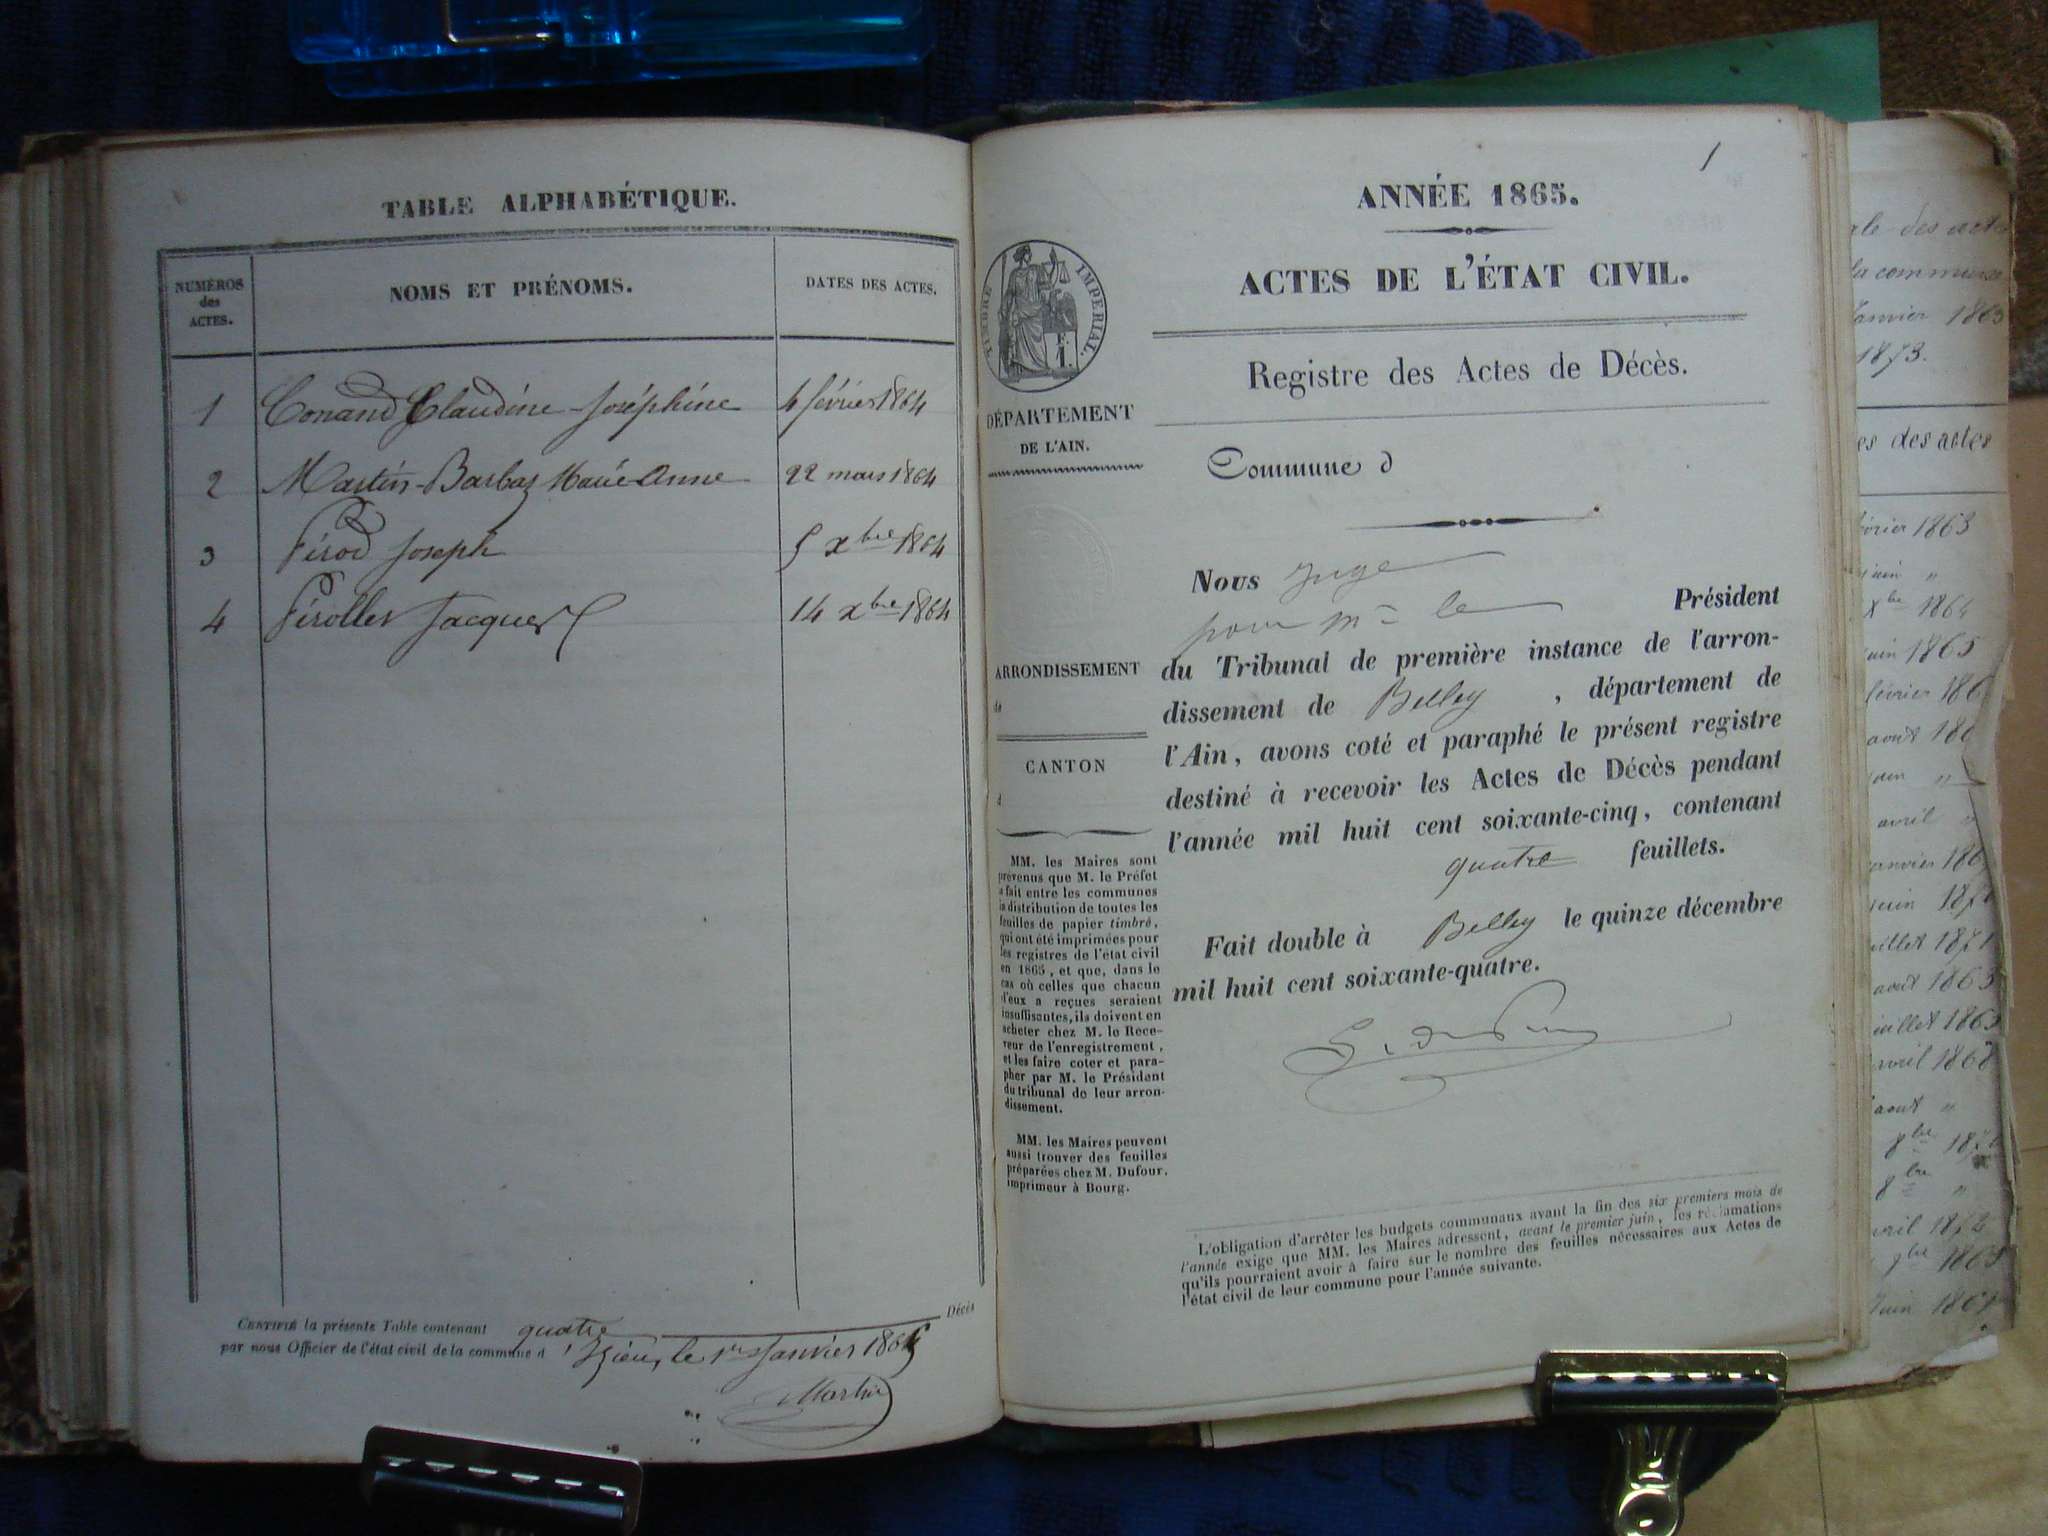 TABLE ALPHABÉTIQUE.
NUMÉROS des ACTES.
NOMS ET PRÉNOMS.
DATES DES ACTES.
1 Conand Claudine Joséphine 4 février 1864
2 Martin-Barbaz Marie Anne 22 mars 1864
3 Pérod Joseph 5 xbre 1864
4 Pérollet Jacques 14 xbre 1864
CERTIFIÉ la présente Table contenant quatre Décès
par nous Officier de l'état civil de la commune d'Izieu, le 1er Janvier 1865
Martin
1
ANNÉE 1865.
ACTES DE L'ÉTAT CIVIL.
Registre des Actes de Décès.
TIMBRE IMPERIAL.
DÉPARTEMENT
DE L'AIN.
Commune d
Nous Juge
pour Mr le Président
du Tribunal de première instance de l'arron-
dissement de Belley, département de
l'Ain, avons coté et paraphé le présent registre
destiné à recevoir les Actes de Décès pendant
l'année mil huit cent soixante-cinq, contenant
quatre feuillets.
Fait double à Belley le quinze décembre
mil huit cent soixante-quatre.
ARRONDISSEMENT
de
CANTON
d
MM. les Maires sont
prévenus que M. le Préfet
a fait entre les communes
la distribution de toutes les
feuilles de papier timbré,
qui ont été imprimées pour
les registres de l'état civil
en 1865, et que, dans le
cas où celles que chacun
d'eux a reçues seraient
insuffisantes, ils doivent en
acheter chez M. le Rece-
veur de l'enregistrement,
et les faire coter et para-
pher par M. le Président
du tribunal de leur arron-
dissement.
MM. les Maires peuvent
aussi trouver des feuilles
préparées chez M. Dufour,
imprimeur à Bourg.
L'obligation d'arrêter les budgets communaux avant la fin des six premiers mois de
l'année exige que MM. les Maires adressent, avant le premier juin, les réclamations
qu'ils pourraient avoir à faire sur le nombre des feuilles nécessaires aux Actes de
l'état civil de leur commune pour l'année suivante.
ale des actes
la commune
Janvier 1863
1873.
es des actes
février 1863
juin "
xbre 1864
juin 1865
février 186
aout 186
juin "
avril "
janvier 186
juin 187
juillet 1871
aout 1863
juillet 1865
avril 1868
aout "
8bre 187
8bre "
avril 1872
9bre 186
Juin 186